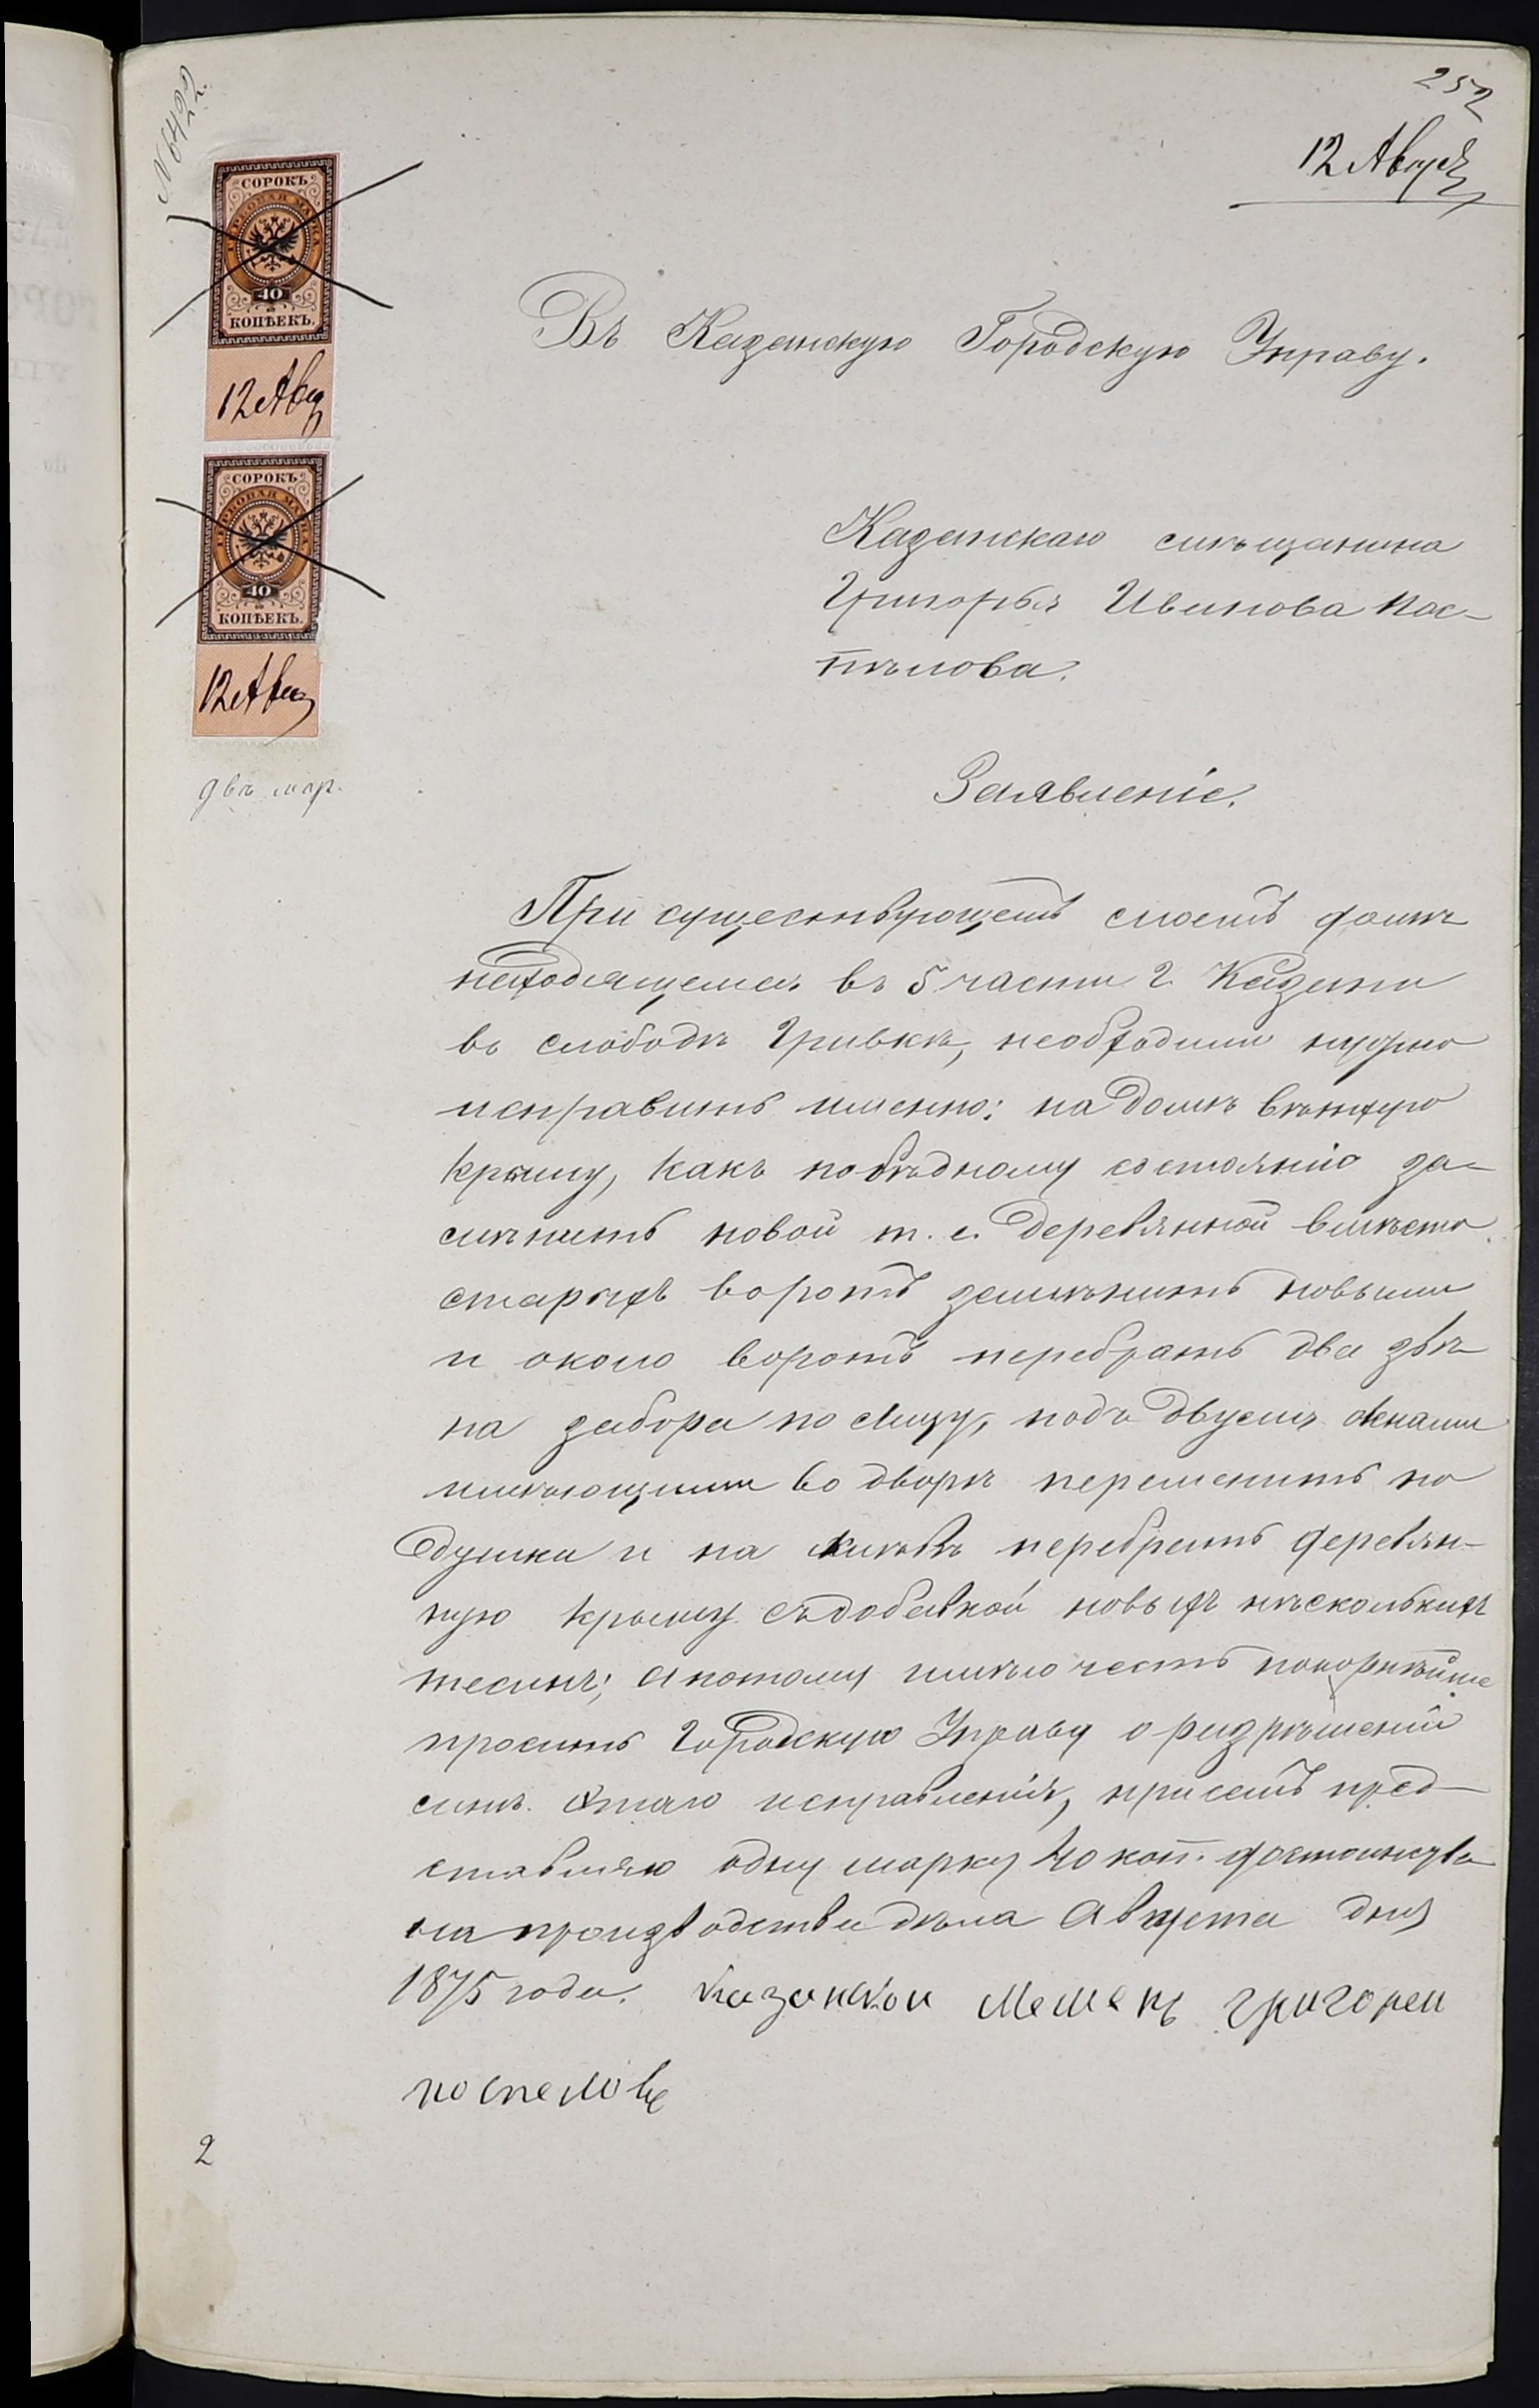 252
12 Авгус
№ 6422.
СОРОКЪ
ГЕРБОВАЯ МАРКА
40
КОПѢЕКЪ.
12 Авг
СОРОКЪ
ГЕРБОВАЯ МАРКА
40
КОПѢЕКЪ.
12 Авг
двѣ мар.
Въ Казанскую Городскую Управу.
Казанскаго мѣщанина
Григорья Иванова Пос-
пѣлова.
Заявленіе.
При существующемъ моемъ домѣ
находящемся въ 5 части г. Казани
въ слободѣ Гривкѣ, необходимо нужно
исправить именно: на домѣ вѣтхую
крышу, какъ по бѣдному состоянію за-
мѣнить новой т. е. деревянной вмѣсто
старыхъ воротъ замѣнить новыми
и около воротъ перебрать два звѣ-
на забора по лицу, подъ двумя окнами
имѣющими во дворѣ переменить по
душки и на хлѣвѣ перебрать деревян-
ную крышу съ добавкой новыхъ нѣсколькихъ
тесинъ; а потому имѣю честь покорнѣйше
просить Городскую Управу о разрѣшеніи
мнѣ этаго исправленія, при семъ пред-
ставляю одну марку 40 коп. достоинства
на производства дѣла Августа дня
1875 года. Казанскои Мещенъ григореи
поспеловъ
2